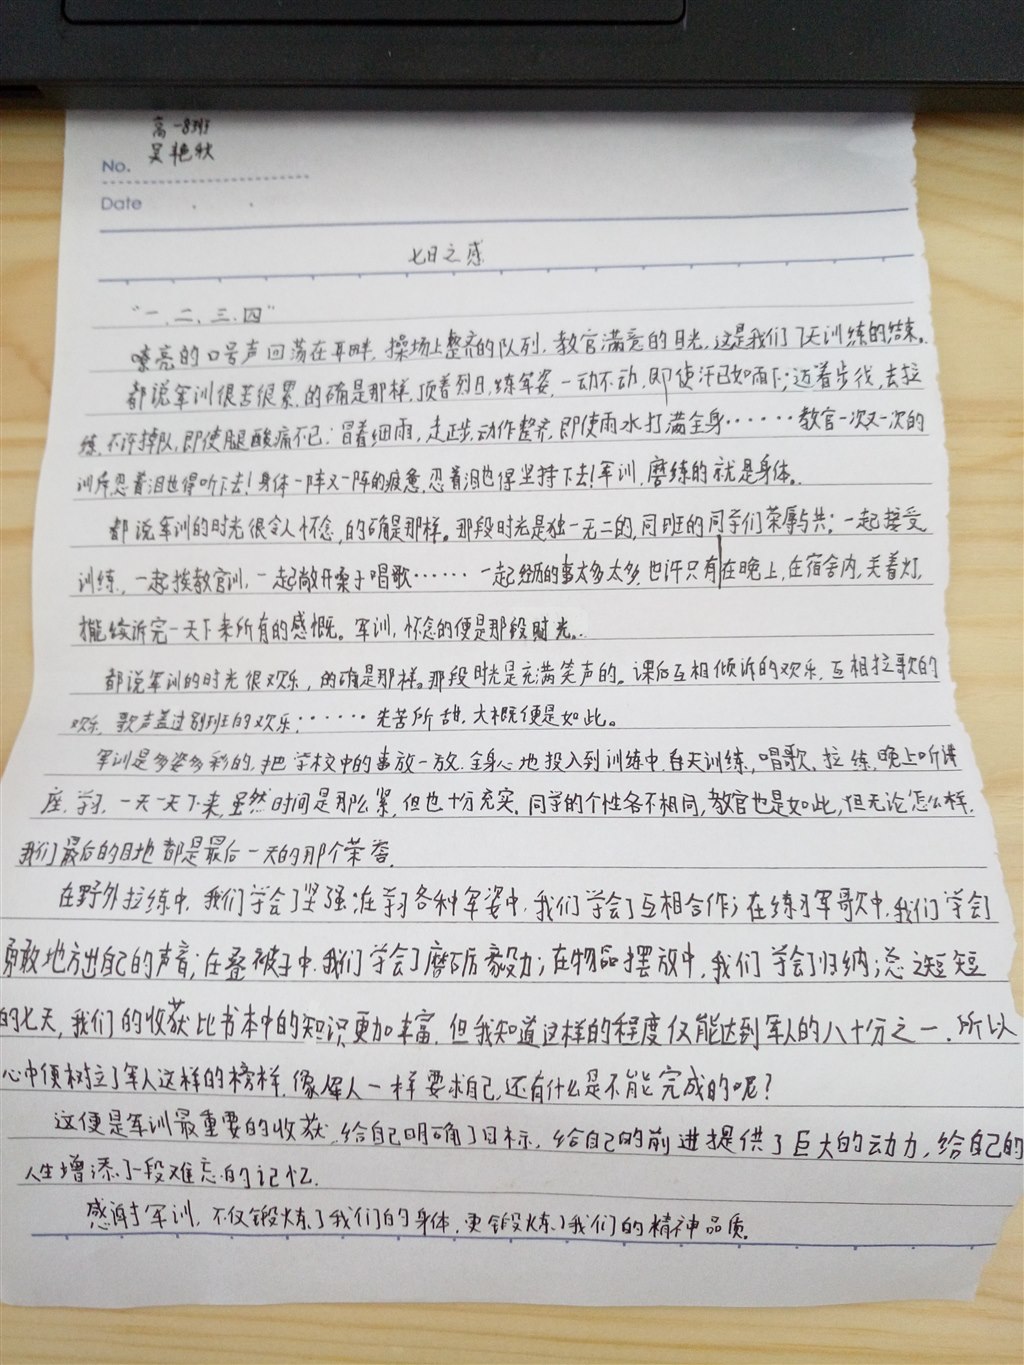 高一8班
No. 吴艳秋
Date
七日之感
“一、二、三、四”
嘹亮的口号声回荡在耳畔,操场上整齐的队列,教官满意的目光,这是我们7天训练的结束。
都说军训很苦很累,的确是那样,顶着烈日,练军姿,一动不动,即使汗已如雨下;迈着步伐,去拉
练,不许掉队,即使腿酸痛不已;冒着细雨,走正步,动作整齐,即使雨水打满全身……教官一次又一次的
训斥忍着泪也得听下去!身体一阵又一阵的疲惫,忍着泪也得坚持下去!军训,磨练的就是身体。
都说军训的时光很令人怀念,的确是那样。那段时光是独一无二的,同班的同学们荣辱与共;一起接受
训练,一起挨教官训,一起敞开嗓子唱歌……一起经历的事太多太多,也许只有在晚上,在宿舍内,关着灯,
才能倾诉完一天下来所有的感慨。军训,怀念的便是那段时光。
都说军训的时光很欢乐,的确是那样。那段时光是充满笑声的。课后互相倾诉的欢乐,互相拉歌的
欢乐,歌声盖过别班的欢乐……先苦所甜,大概便是如此。
军训是多姿多彩的,把学校中的事放一放,全身心地投入到训练中,白天训练,唱歌,拉练,晚上听讲
座,学习,一天一天下来,虽然时间是那么紧,但也十分充实。同学的个性各不相同,教官也是如此,但无论怎么样,
我们最后的目地都是最后一天的那个荣誉。
在野外拉练中,我们学会了坚强;在学习各种军姿中,我们学会了互相合作;在练习军歌中,我们学会了
勇敢地方出自己的声音;在叠被子中,我们学会了磨砺毅力;在物品摆放中,我们学会了归纳;总之短短
的七天,我们的收获比书本中的知识更加丰富,但我知道这样的程度仅能达到军人的八十分之一,所以
心中便树立了军人这样的榜样,像军人一样要求自己,还有什么是不能完成的呢?
这便是军训最重要的收获,给自己明确了目标,给自己的前进提供了巨大的动力,给自己的
人生增添了一段难忘的记忆。
感谢军训,不仅锻炼了我们的身体,更锻炼了我们的精神品质。